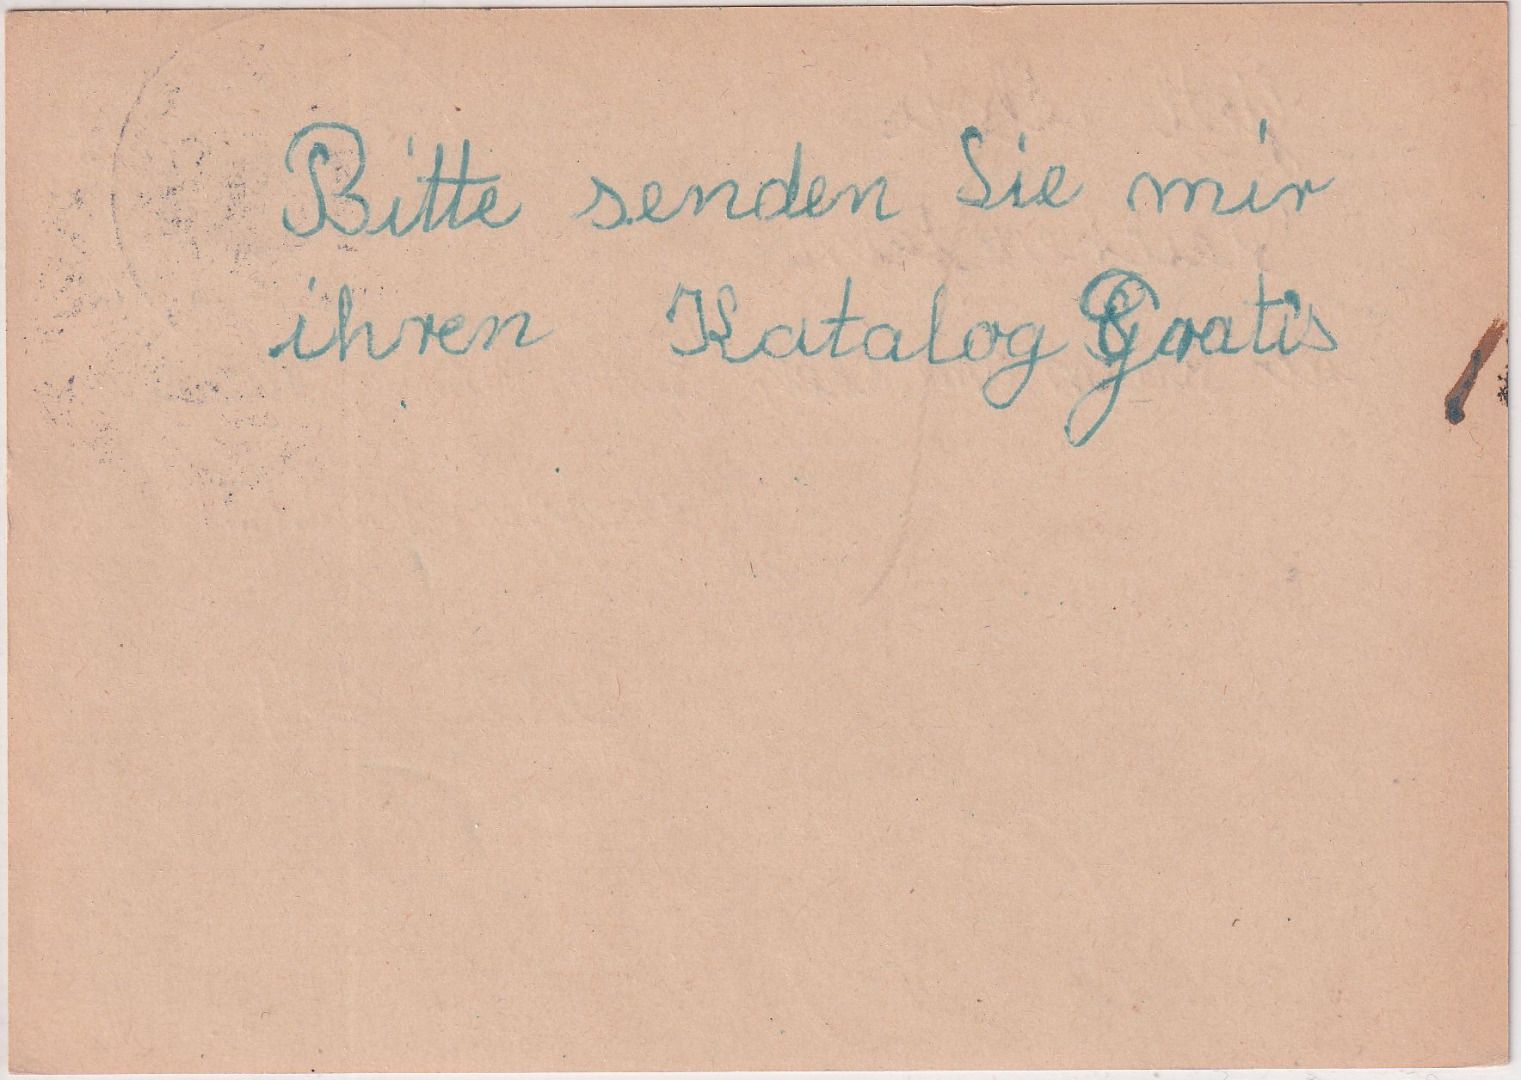 Bitte senden Sie mir
ihren Katalog Gratis